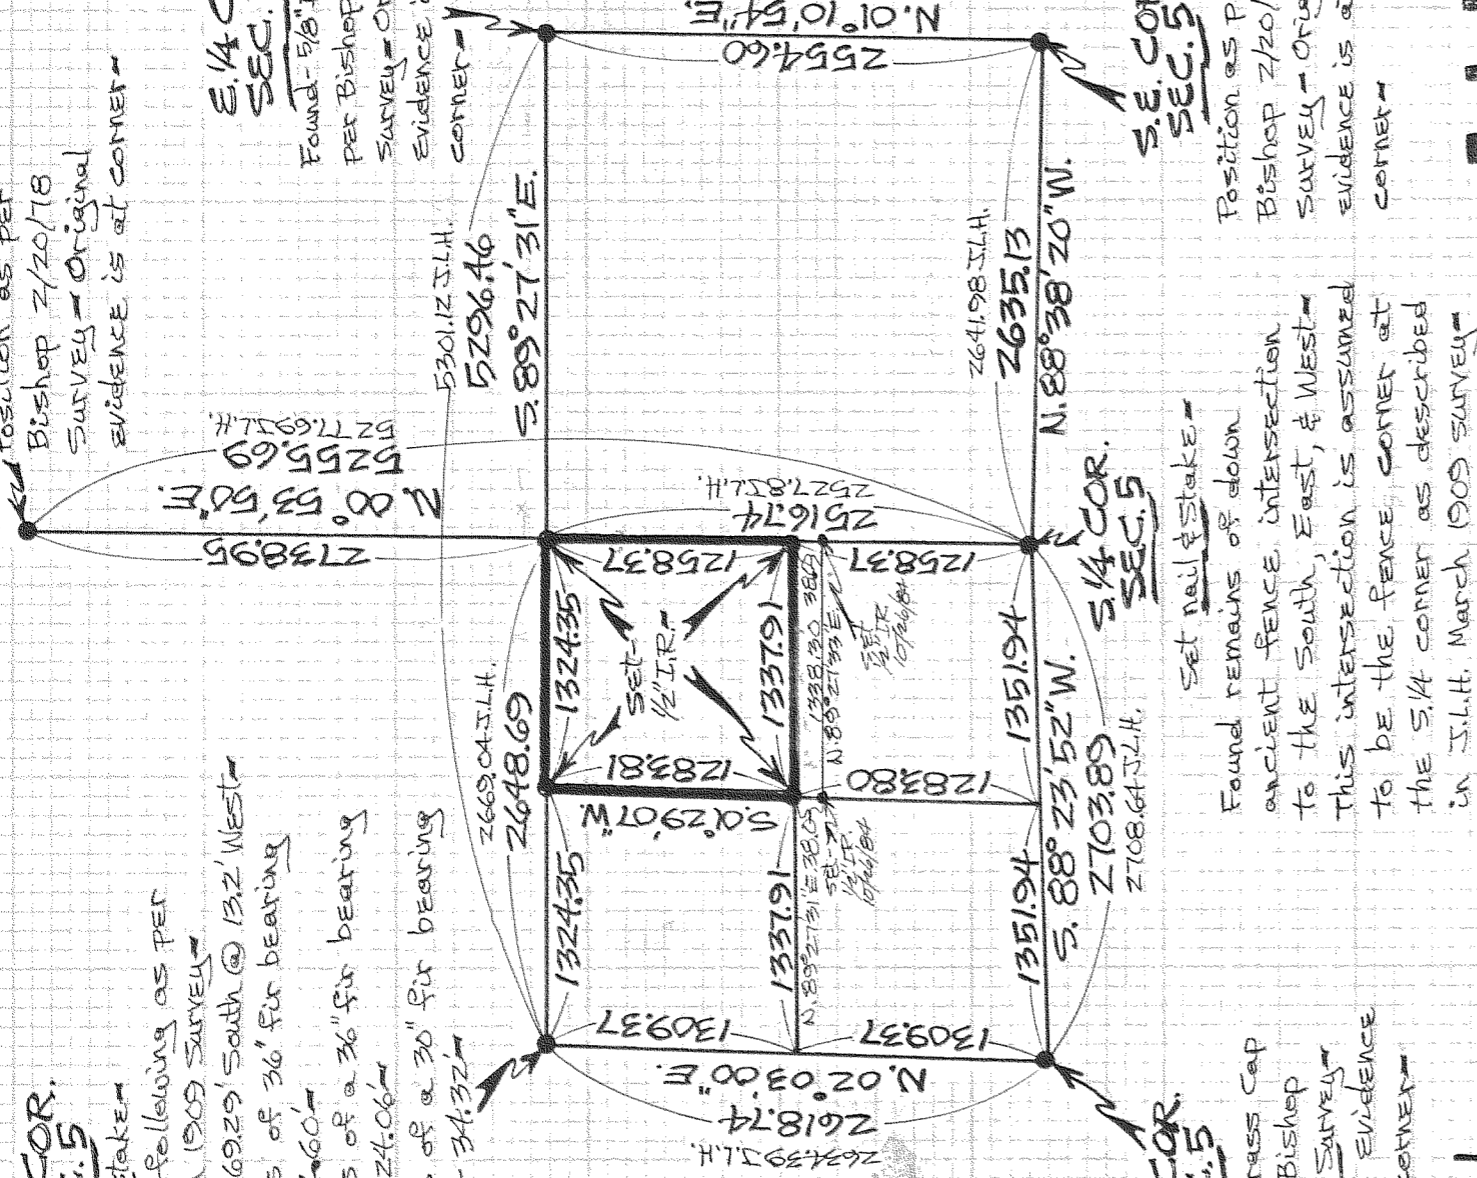 Position as per
Bishop 2/20/78
Survey - Original
evidence is at corner -
E. 1/4 C
SEC.
Found - 5/8"
per Bishop
Survey - Or
evidence i
corner -
N. 01° 10' 54" E.
2554.60
S.E. COR
SEC. 5
Position as p
Bishop 2/20/
Survey - Orig
evidence is a
corner -
5301.12 J.L.H.
5296.46
S. 89° 27' 31" E.
2641.98 J.L.H.
2635.13
N. 88° 38' 20" W.
5277.69 J.L.H.
5255.69
N. 00° 53' 50" E.
2738.95
2527.8 J.L.H.
2516.74
1258.37
1258.37
S. 1/4 COR.
SEC. 5
Set nail & stake -
Found remains of down
ancient fence intersection
to the South, East, & West -
This intersection is assumed
to be the fence corner at
the S. 1/4 corner as described
in J.L.H. March 1909 survey -
2669.04 J.L.H.
2648.69
1324.35
1324.35
SET
1/2" I.R. -
1283.81
S. 01° 29' 07" W.
1337.91
1338.30
N. 89° 27' 33" E.
SET
1/2" I.R.
10/26/84
1283.80
1337.91
N. 89° 27' 31" E 38.05
SET
1/2" I.R.
10/26/84
1351.94
1351.94
S. 88° 23' 52" W.
2703.89
2708.64 J.L.H.
1309.37
1309.37
N. 02° 03' 00" E.
2618.74
2634.39 J.L.H.
COR.
. 5
take -
following as per
1909 Survey -
69.29' South @ 13.2' West -
of 36" fir bearing
.60' -
s of a 36" fir bearing
24.06' -
. of a 30" fir bearing
- 34.32' -
COR.
. 5
rass Cap
Bishop
Survey -
Evidence
corner -